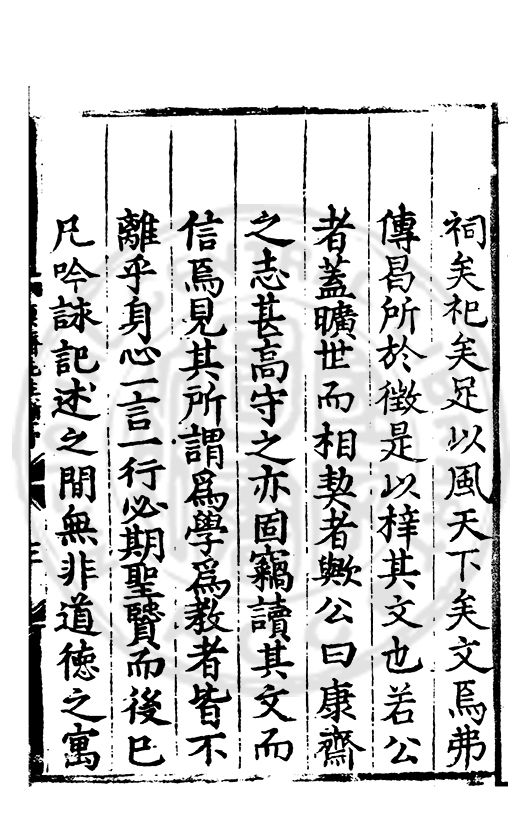 祠矣祀矣足以風天下矣文焉弗
傳曷所於徵是以梓其文也若公
者蓋曠世而相契者歟公曰康齋
之志甚高守之亦固竊讀其文而
信焉見其所謂爲學爲教者皆不
離乎身心一言一行必期聖賢而後已
凡吟詠記述之間無非道德之寓